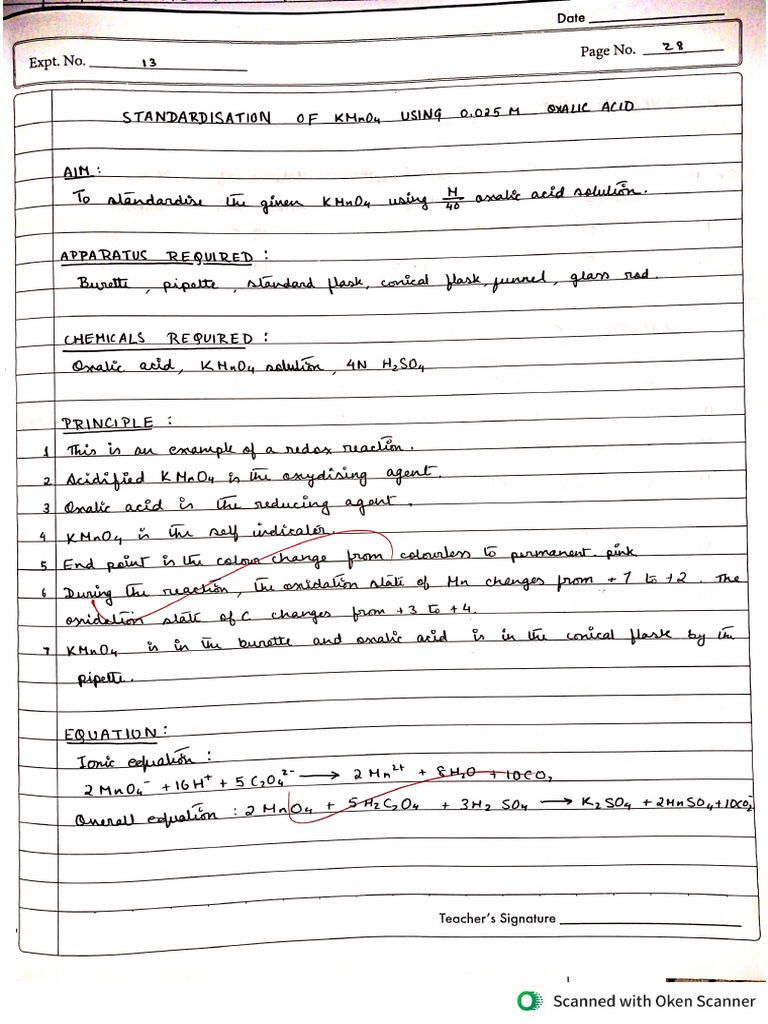 Date
Expt. No. 13
Page No. 28
STANDARDISATION OF KMnO4 USING 0.025 M OXALIC ACID
AIM:
To standardise the given KMnO4 using M/40 oxalic acid solution.
APPARATUS REQUIRED:
Burette, pipette, standard flask, conical flask, funnel, glass rod.
CHEMICALS REQUIRED:
Oxalic acid, KMnO4 solution, 4N H2SO4
PRINCIPLE:
1 This is an example of a redox reaction.
2 Acidified KMnO4 is the oxydising agent.
3 Oxalic acid is the reducing agent.
4 KMnO4 is the self indicator.
5 End point is the colour change from colourless to permanent pink
6 During the reaction, the oxidation state of Mn changes from +7 to +2. The
oxidation state of C changes from +3 to +4.
7 KMnO4 is in the burette and oxalic acid is in the conical flask by the
pipette.
EQUATION:
Ionic equation:
2 MnO4⁻ + 16H⁺ + 5 C2O4²⁻ → 2 Mn²⁺ + 8H2O + 10CO2
Overall equation: 2 MnO4 + 5H2C2O4 + 3H2SO4 → K2SO4 + 2MnSO4 + 10CO2
Teacher's Signature
Scanned with Oken Scanner